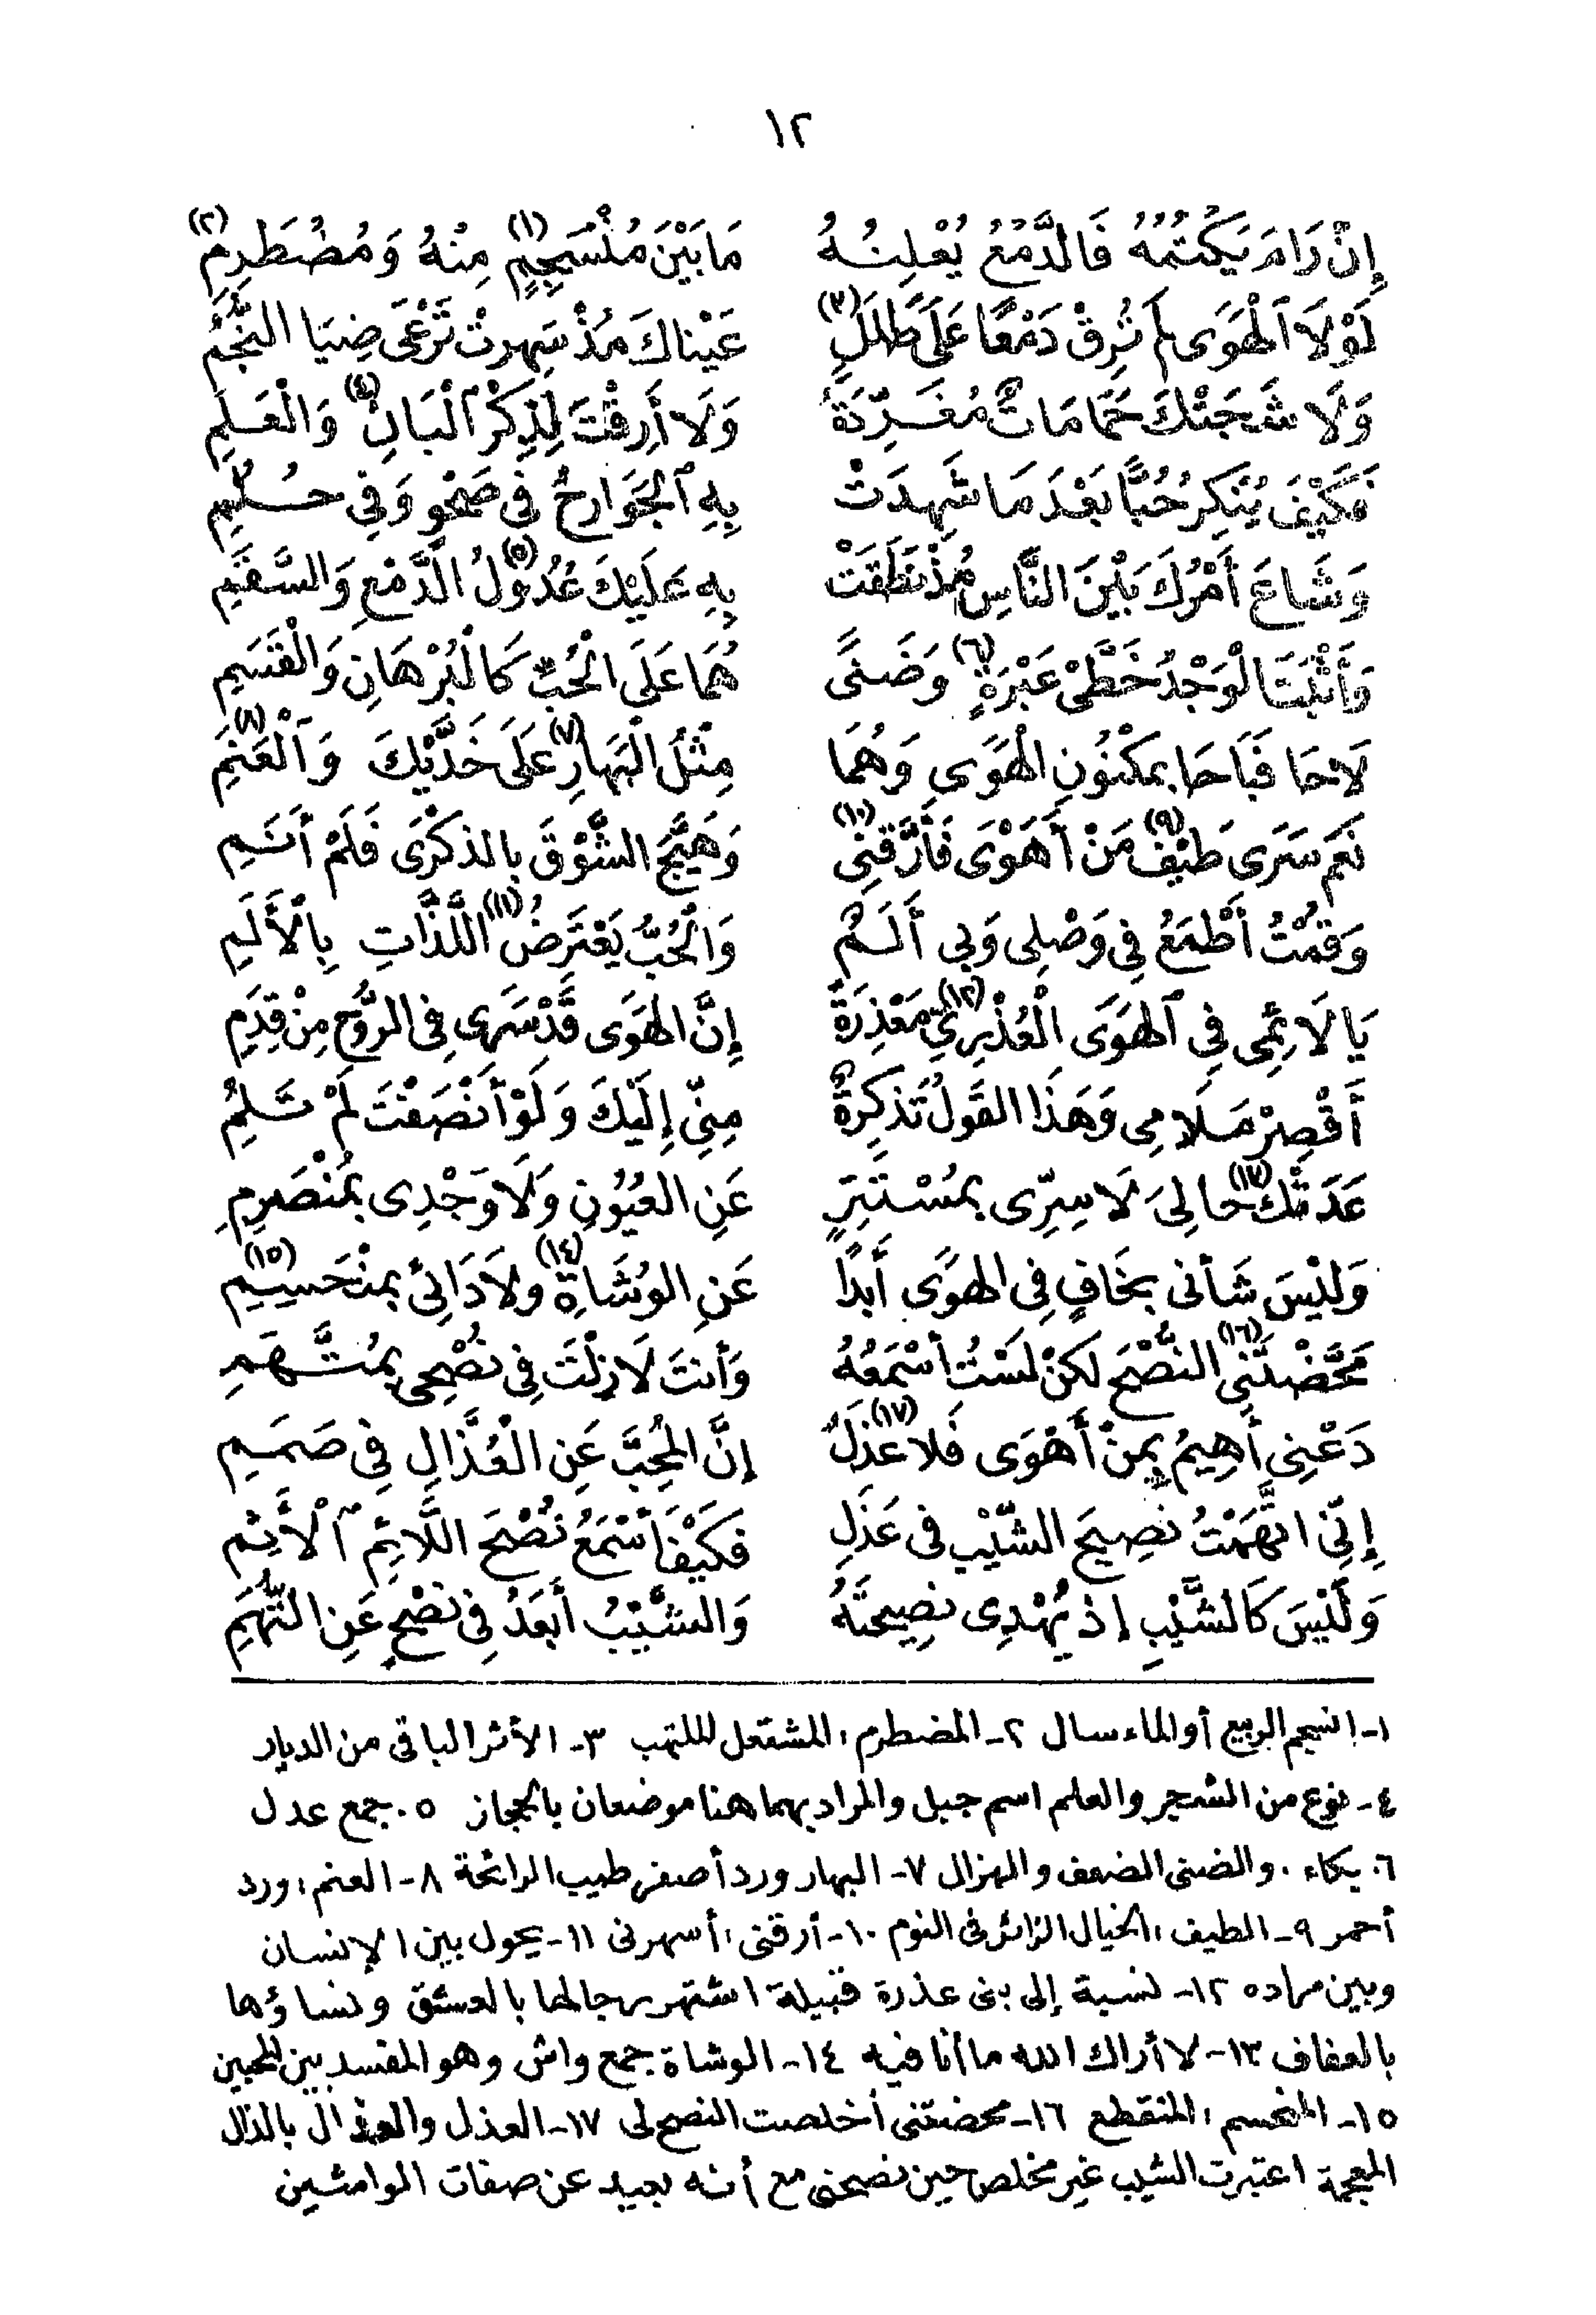 ١٢
إِنْ رَامَ يَكْتُمُهُ فَالدَّمْعُ يُعْلِنُهُ مَا بَيْنَ مُنْسَجِمٍ (١) مِنْهُ وَمُضْطَرِمِ (٢)
لَوْلَا ٱلْهَوَى لَمْ تُرِقْ دَمْعًا عَلَى طَلَلٍ (٣) عَيْنَاكَ مُذْ سَهِرتْ تَرْعَى ضِيَا النُّجُمِ
وَلَا شَجَتْكَ حَمَامَاتٌ مُغَرِّدَةٌ وَلَا أَرِقْتَ لِذِكْرِ ٱلْبَانِ (٤) وَالْعَلَمِ
فَكَيْفَ يُنْكِرُ حُبًّا بَعْدَ مَا شَهِدَتْ بِهِ ٱلْجَوَارِحُ فِى صَحْوٍ وَفِى حُلُمِ
وَشَاعَ أَمْرُكَ بَيْنَ النَّاسِ مُذْ نَطَقَتْ بِهِ عَلَيْكَ عُدُولُ (٥) الدَّمْعِ وَالسَّقَمِ
وَأَثْبَتَ الْوَجْدُ خَطَّىْ عَبْرَةٍ (٦) وَضَنًى هُمَا عَلَى الْحُبِّ كَالْبُرْهَانِ وَالْقَسَمِ
لَاحَا فَبَاحَا بِمَكْنُونِ الْهَوَى وَهُمَا مِثْلُ الْبَهَارِ (٧) عَلَى خَدَّيْكَ وَٱلْعَنَمِ (٨)
نَعَم سَرَى طَيْفُ (٩) مَنْ أَهْوَى فَأَرَّقَنِى (١٠) وَهَيَّجَ الشَّوْقَ بِالذِكْرَى فَلَمْ أَنَمِ
وَقُمْتُ أَطْمَعُ فِى وَصْلِى وَبِى أَلَمٌ وَالْحُبُّ يَعْتَرِضُ (١١) اللَّذَّاتِ بِالْأَلَمِ
يَا لَائِمِى فِى ٱلْهَوَى الْعُذْرِيِّ (١٢) مَعْذِرَةً إِنَّ الهَوَى قَدْ سَرَى فِى الرُّوحِ مِنْ قِدَمِ
أَقْصِرْ مَلَامِى وَهَذَا القَوْلُ تَذكِرَةٌ مِنِّى إِلَيْكَ وَلَوْ أَنْصَفْتَ لَمْ تَلُمِ
عَدَتْكَ (١٣) حَالِىَ لَا سِرِّى بِمُسْتَتِرٍ عَنِ العُيُونِ وَلَا وَجْدِى بِمُنْصَرِمِ
وَلَيْسَ شَأنى بِخَافٍ فِى الهَوَى أَبَدًا عَنِ الوُشَاةِ (١٤) ولَا دَائِى بِمنْحَسِمِ (١٥)
مَحَّضْتَنِى (١٦) النُّصْحَ لَكِنْ لَسْتُ أَسْمَعُهُ وَأَنتَ لَا زِلْتَ فِى نُصْحِى بِمُتَّهَمِ
دَعْنِى أَهِيمُ بِمنْ أَهْوَى فَلَا عَذَلٌ (١٧) إِنَّ المُحِبَّ عَنِ الْعُذَّالِ فِى صَمَمِ
إِنِّى اتَّهَمْتُ نَصِيحَ الشَّيْبِ فى عَذَلِ فَكَيْفَ أَسْمَعُ نُصْحَ اللَّائِمِ ٱلْأَثِمِ
وَلَيْسَ كَالشَّيْبِ إِذ يُهْدِى نَصِيحَتَهُ وَالشَّيْبُ أَبْعَدُ فِى نُصْحٍ عَنِ التُّهَمِ
١- انسجم الربيع أو الماء سال ٢- المضطرم: المشتعل الملتهب ٣- الأثر الباقى من الديار
٤- نوع من الشجر والعلم اسم جبل والمراد بهما هنا موضعان بالحجاز ٥. جمع عدل
٦. بكاء. والضنى الضعف والهزال ٧- البهار ورد أصفر طيب الرائحة ٨- العنم: ورد
أحمر ٩- الطيف: الخيال الزائر فى النوم ١٠- أرقنى: أسهرنى ١١- يحول بين الإنسان
وبين مراده ١٢- نسبة إلى بنى عذرة قبيلة اشتهر رجالها بالعشق ونساؤها
بالعفاف ١٣- لا أراك الله ما أنا فيه ١٤- الوشاة جمع واش وهو المفسد بين المحبين
١٥- المنحسم: المنقطع ١٦- محضتنى أخلصت النصح لى ١٧- العذل والعذال بالذال
المعجمة اعتبرت الشيب غير مخلص حين نصحنى مع أنه بعيد عن صفات الوامشين